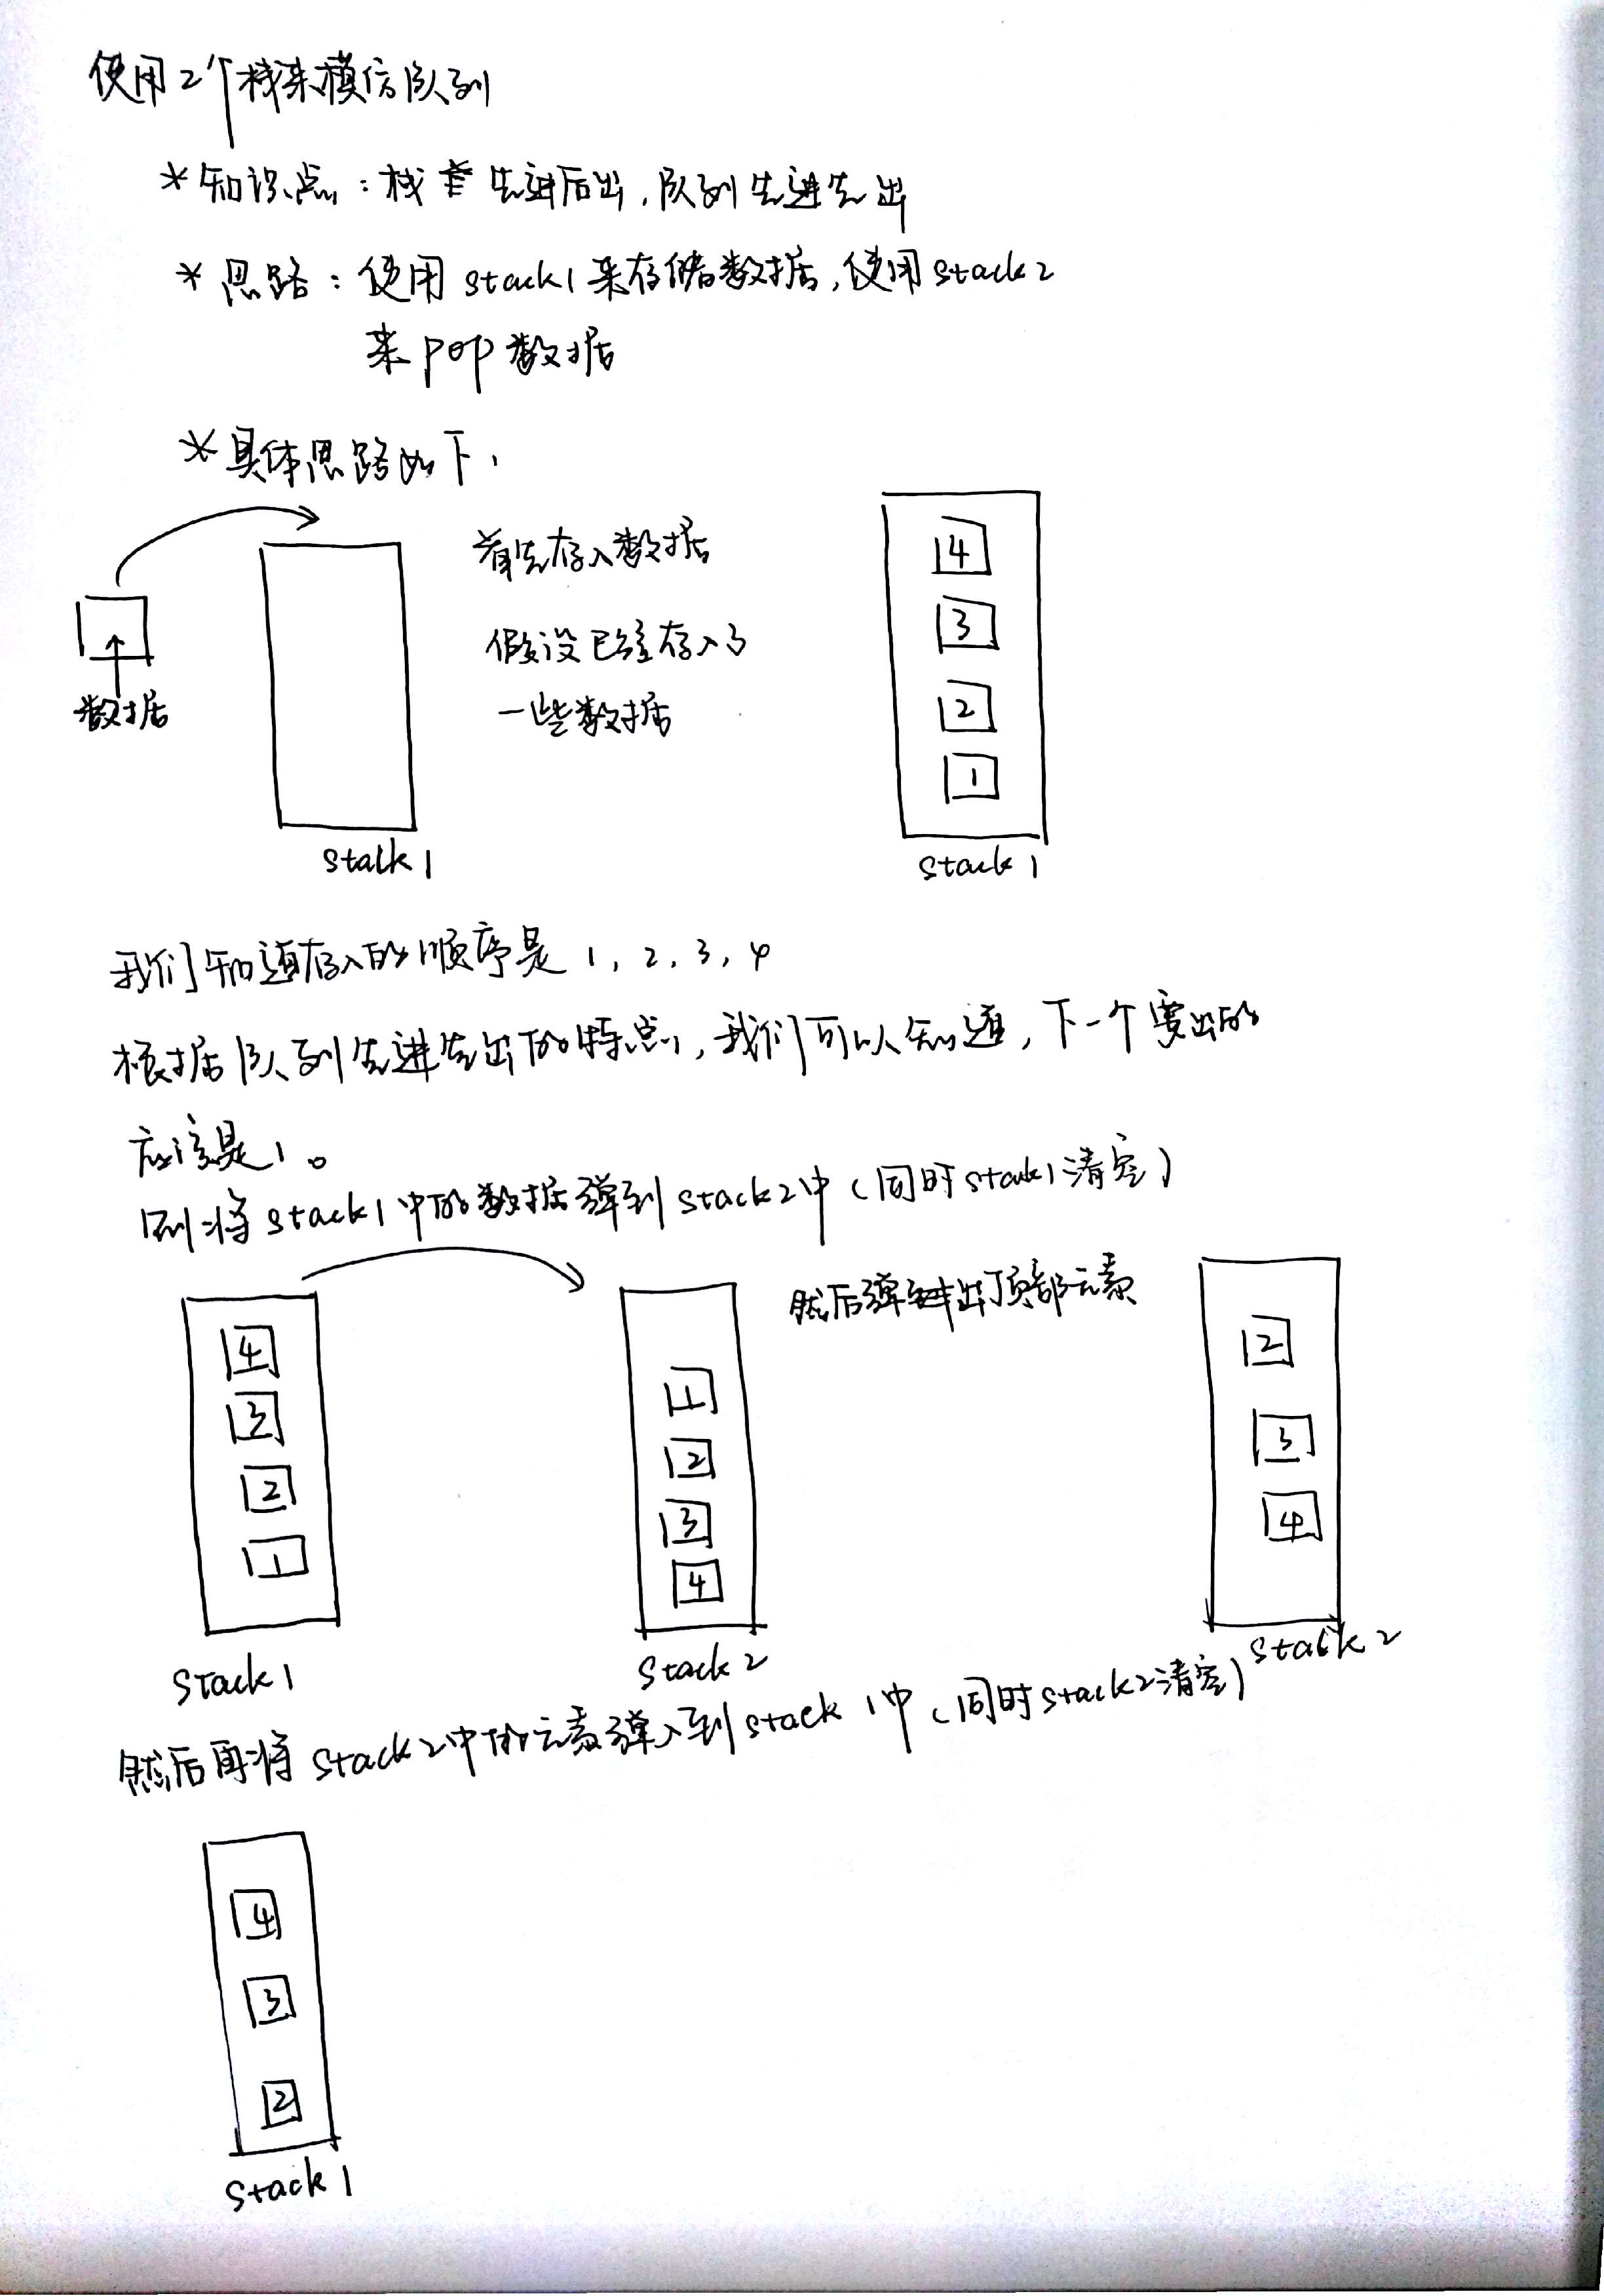 使用2个栈来模仿队列
*知识点：栈 先进后出，队列先进先出
*思路：使用stack1来存储数据，使用stack2
来pop数据
*具体思路如下，
首先存入数据
假设已经存入了
一些数据
数据
stack1
4
3
2
1
stack1
我们知道存入的顺序是1，2，3，4
根据队列先进先出的特点，我们可以知道，下一个要出的
应该是1。
则将stack1中的数据弹到stack2中（同时stack1清空）
然后弹出顶部元素
4
3
2
1
stack1
1
2
3
4
stack2
2
3
4
stack2
然后再将stack2中的元素弹入到stack1中（同时stack2清空）
4
3
2
stack1